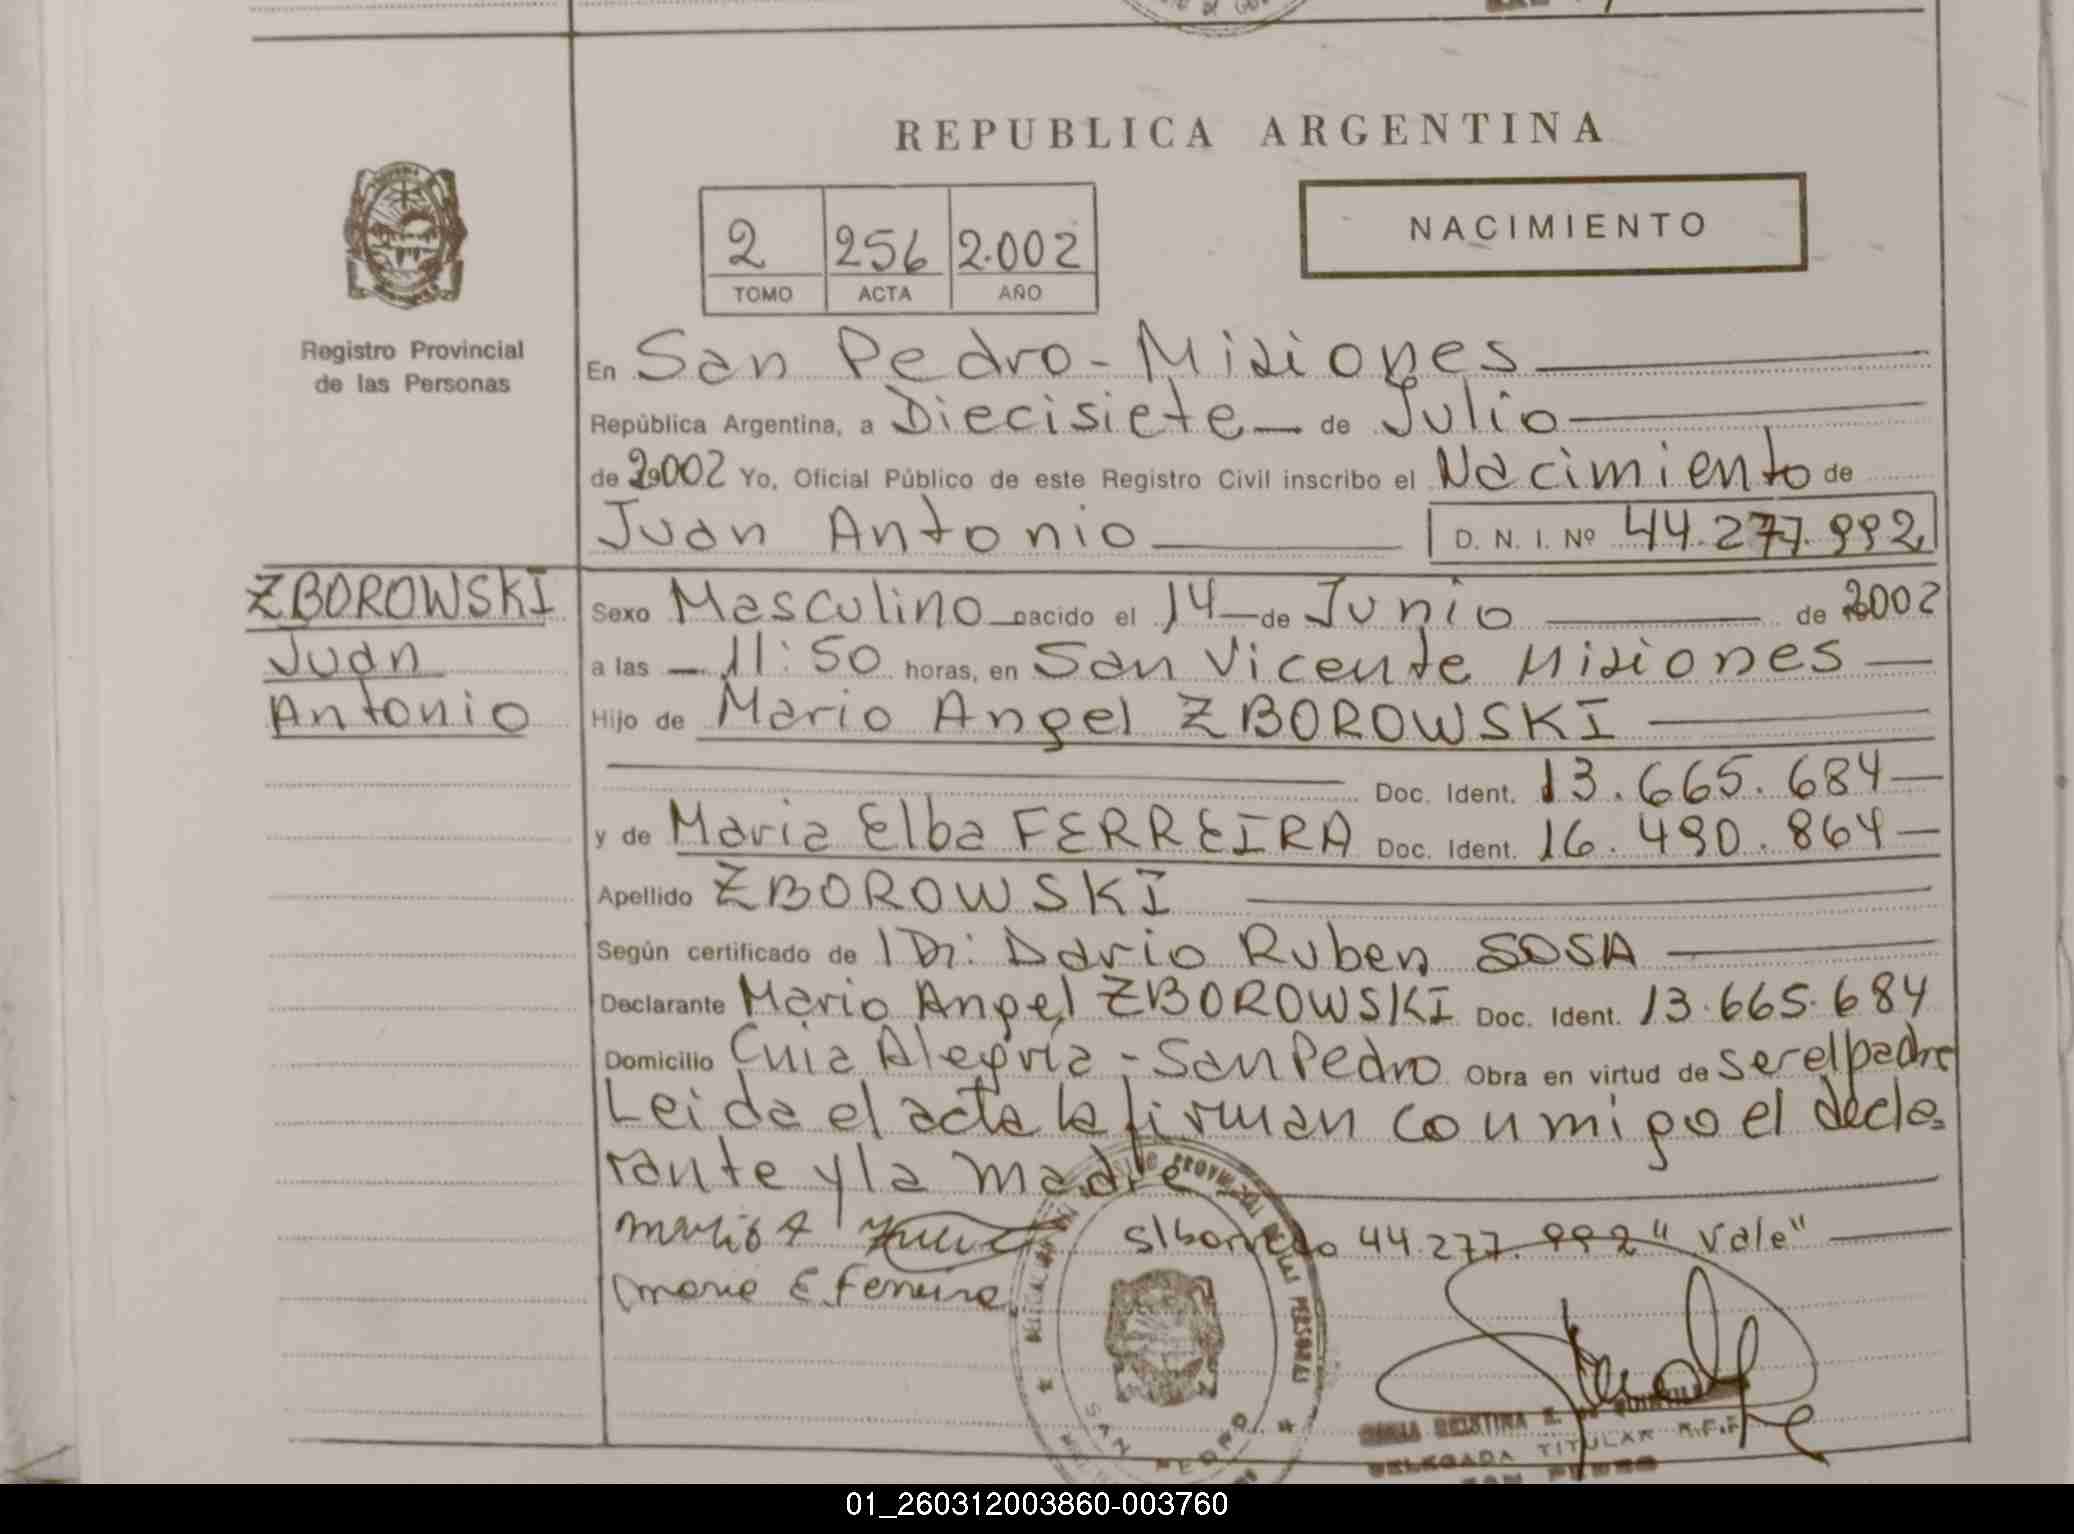 REPUBLICA ARGENTINA
NACIMIENTO
2 256 2.002
TOMO ACTA AÑO
Registro Provincial
de las Personas
En San Pedro - Misiones
República Argentina, a Diecisiete de Julio
de 2002 Yo, Oficial Público de este Registro Civil inscribo el Nacimiento de
Juan Antonio D. N. I. Nº 44.277.992
ZBOROWSKI
Juan
Antonio
Sexo Masculino nacido el 14 de Junio de 2002
a las 11:50 horas, en San Vicente Misiones
Hijo de Mario Angel ZBOROWSKI
Doc. Ident. 13.665.684
y de Maria Elba FERREIRA Doc. Ident. 16.490.864
Apellido ZBOROWSKI
Según certificado de Dr: Dario Ruben SOSA
Declarante Mario Angel ZBOROWSKI Doc. Ident. 13.665.684
Domicilio Cuia Alegría - San Pedro Obra en virtud de ser el padre
Leida el acta la firman conmigo el decla=
rante y la madre
Mario A
S/borrado 44.277.992 "Vale"
Maria E. Ferreira
PROVINCIAL DE LAS PERSONAS
SAN PEDRO
DELEGADA TITULAR R.P.P.
SAN PEDRO
01_260312003860-003760